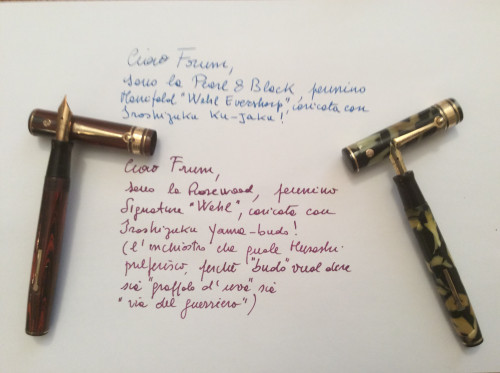 Ciao Forum,
sono la Pearl & Black, pennino
Manifold "Wahl Eversharp", caricata con
Iroshizuku Ku-Jaku!
Ciao Frum,
sono la Rosewood, pennino
Signature "Wahl", caricata con
Iroshizuku Yama-budo!
(l'inchiostro che quale Musashi
preferisco, perché "budo" vuol dire
sia "grappolo d'uva" sia
"via del guerriero")